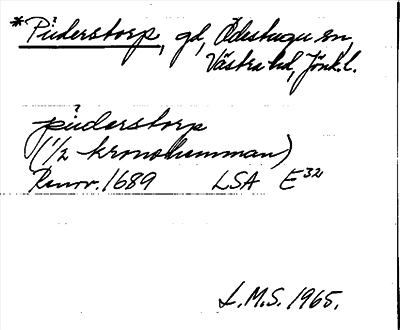 *Püderstorp, gd, Ödestugu sn,
Västra hd, Jönk.l.
püderstorp
(1/2 kronohemman)
Renov. 1689 LSA E32
L.M.S. 1965.